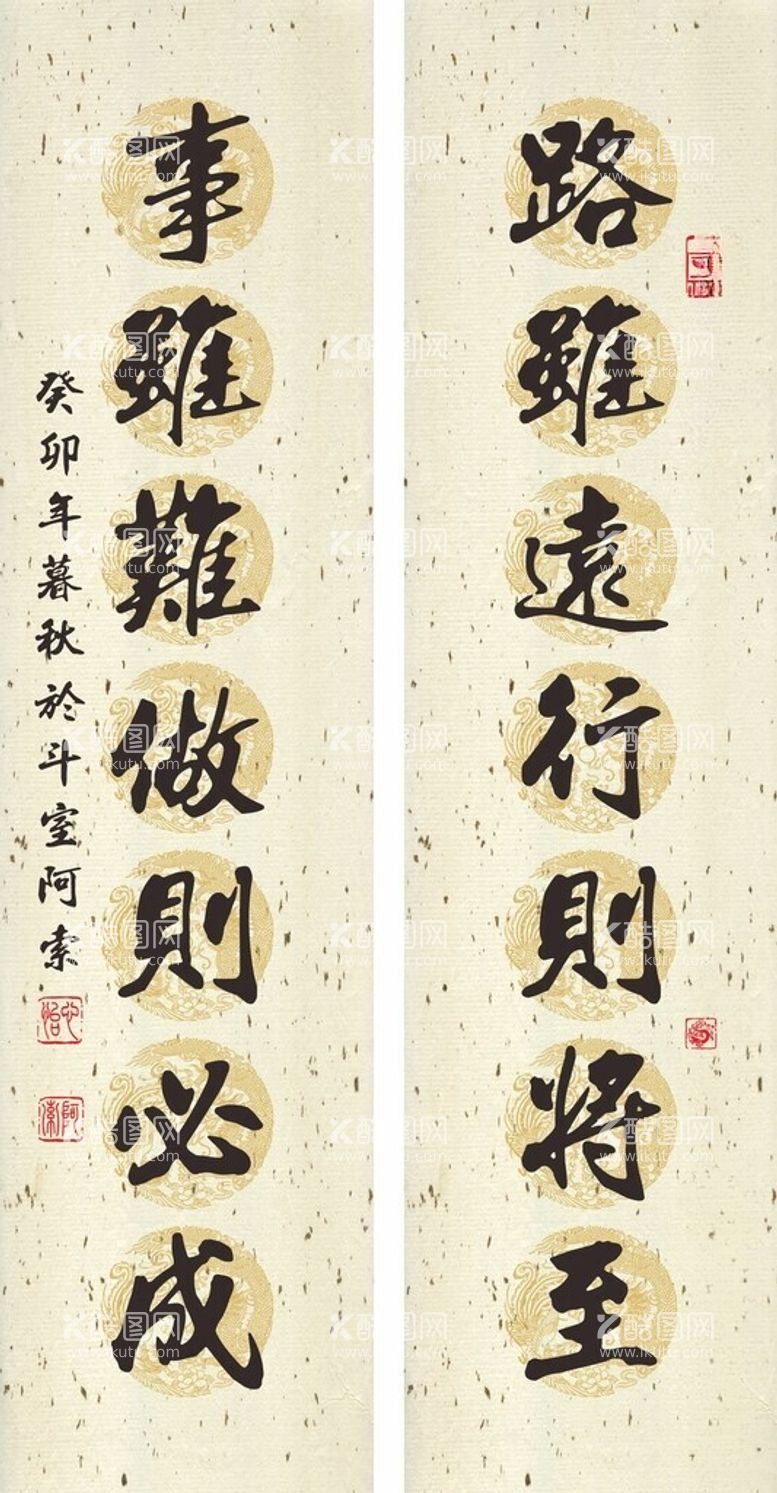 路雖遠行則將至
事雖難做則必成
癸卯年暮秋於斗室阿索
阿索
酷图网
www.ikutu.com